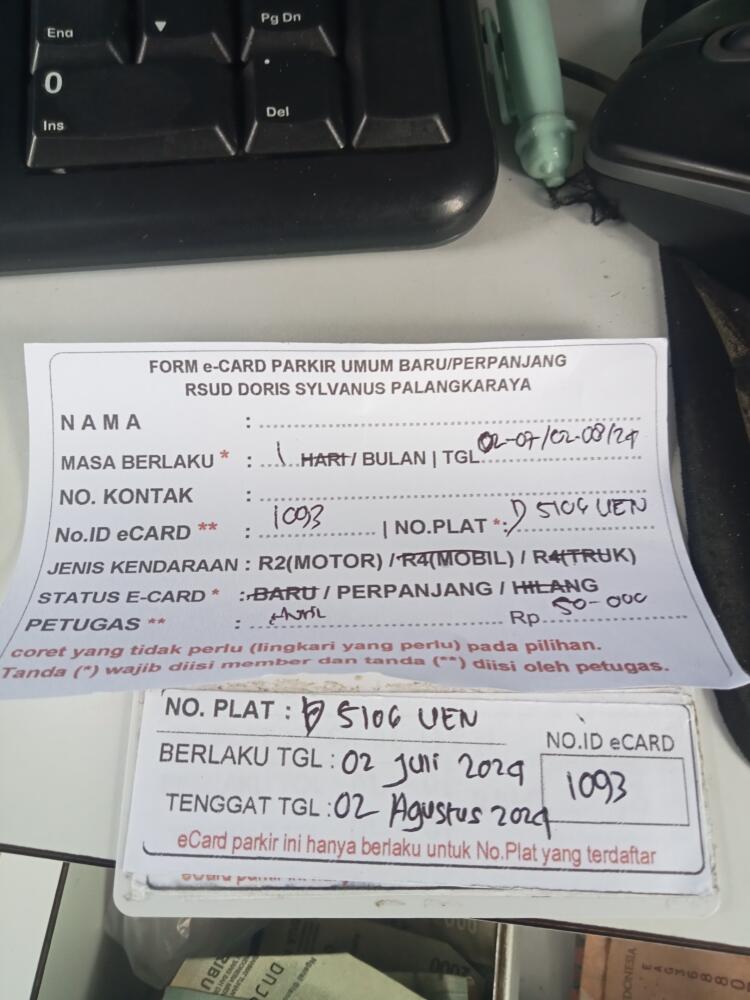 End
▼
Pg Dn
0
Ins
.
Del
FORM e-CARD PARKIR UMUM BARU/PERPANJANG
RSUD DORIS SYLVANUS PALANGKARAYA
NAMA :
MASA BERLAKU * : 1 HARI / BULAN | TGL 02-07/02-08/24
NO. KONTAK :
No.ID eCARD ** : 1093 | NO.PLAT *: D 5106 UEN
JENIS KENDARAAN : R2(MOTOR) / R4(MOBIL) / R4(TRUK)
STATUS E-CARD * : BARU / PERPANJANG / HILANG
PETUGAS ** : Rp 50-000
coret yang tidak perlu (lingkari yang perlu) pada pilihan.
Tanda (*) wajib diisi member dan tanda (**) diisi oleh petugas.
NO. PLAT : D 5106 UEN
NO.ID eCARD
BERLAKU TGL : 02 Juli 2024
1093
TENGGAT TGL : 02 Agustus 2024
eCard parkir ini hanya berlaku untuk No.Plat yang terdaftar
RIBU
000
INDONESIA